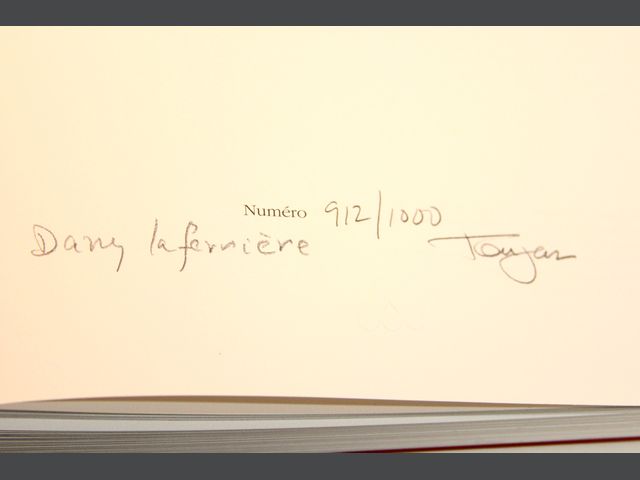 Numéro 912/1000
Dany laferrière